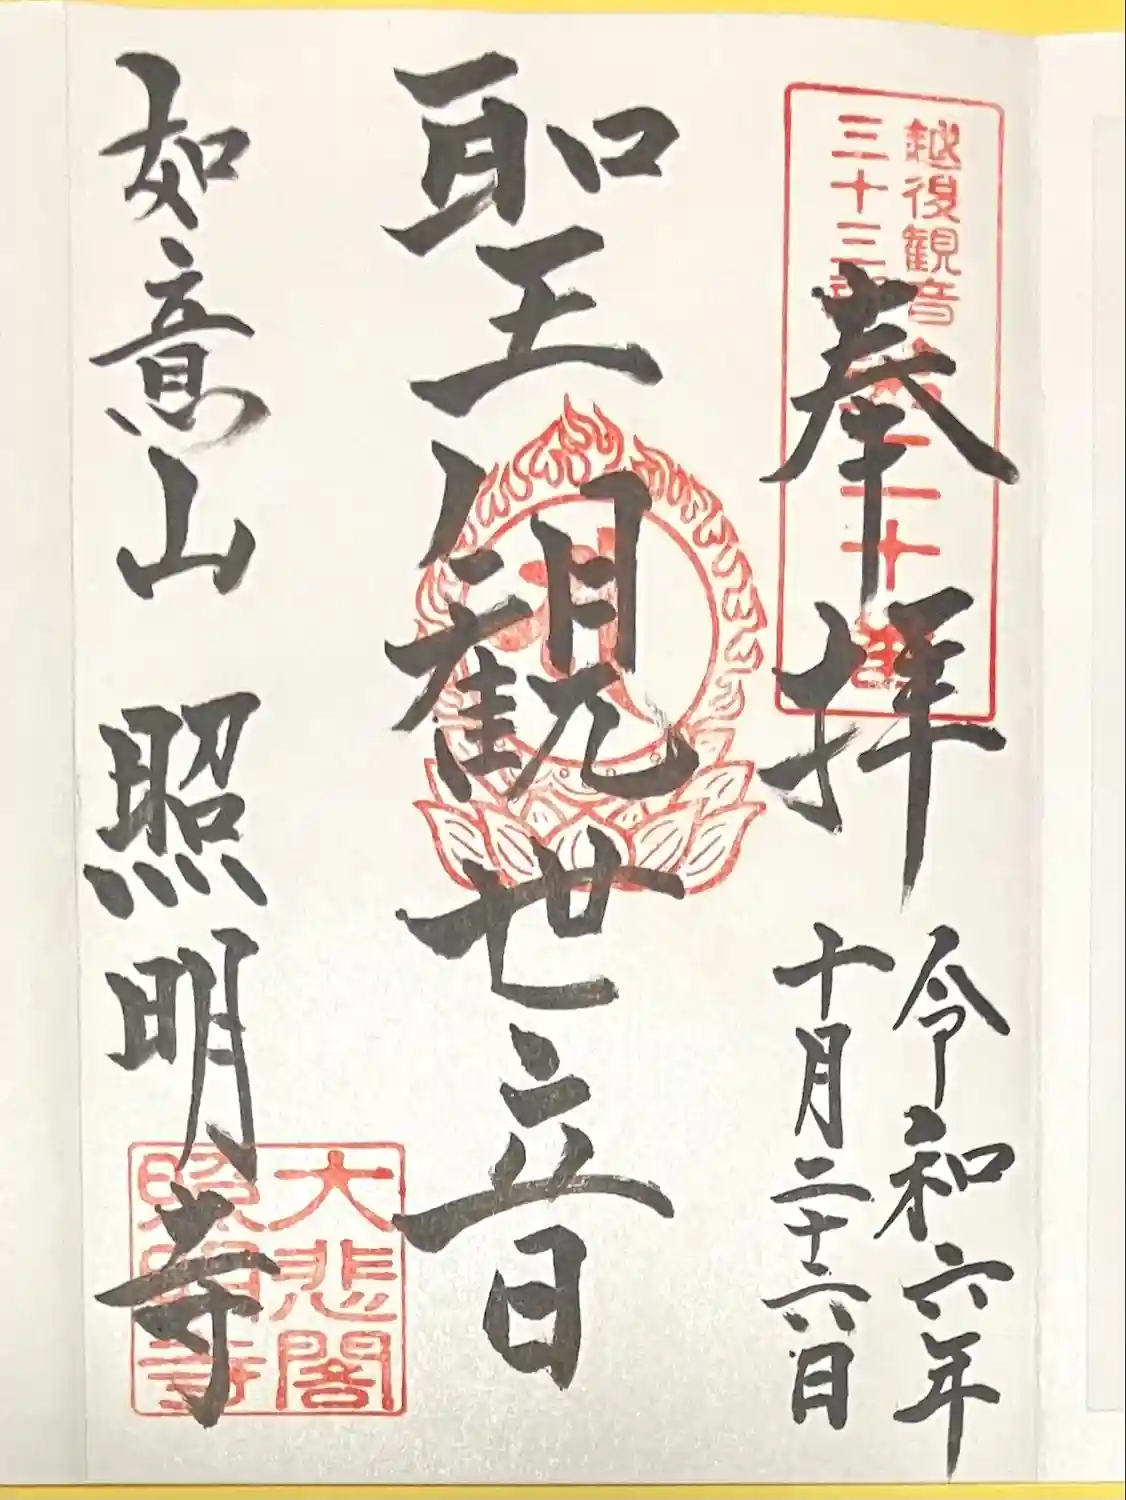 奉拝
越後観音
三十三
二十
令和六年
十月二十六日
聖観世音
如意山 照明寺
大悲閣
照明寺